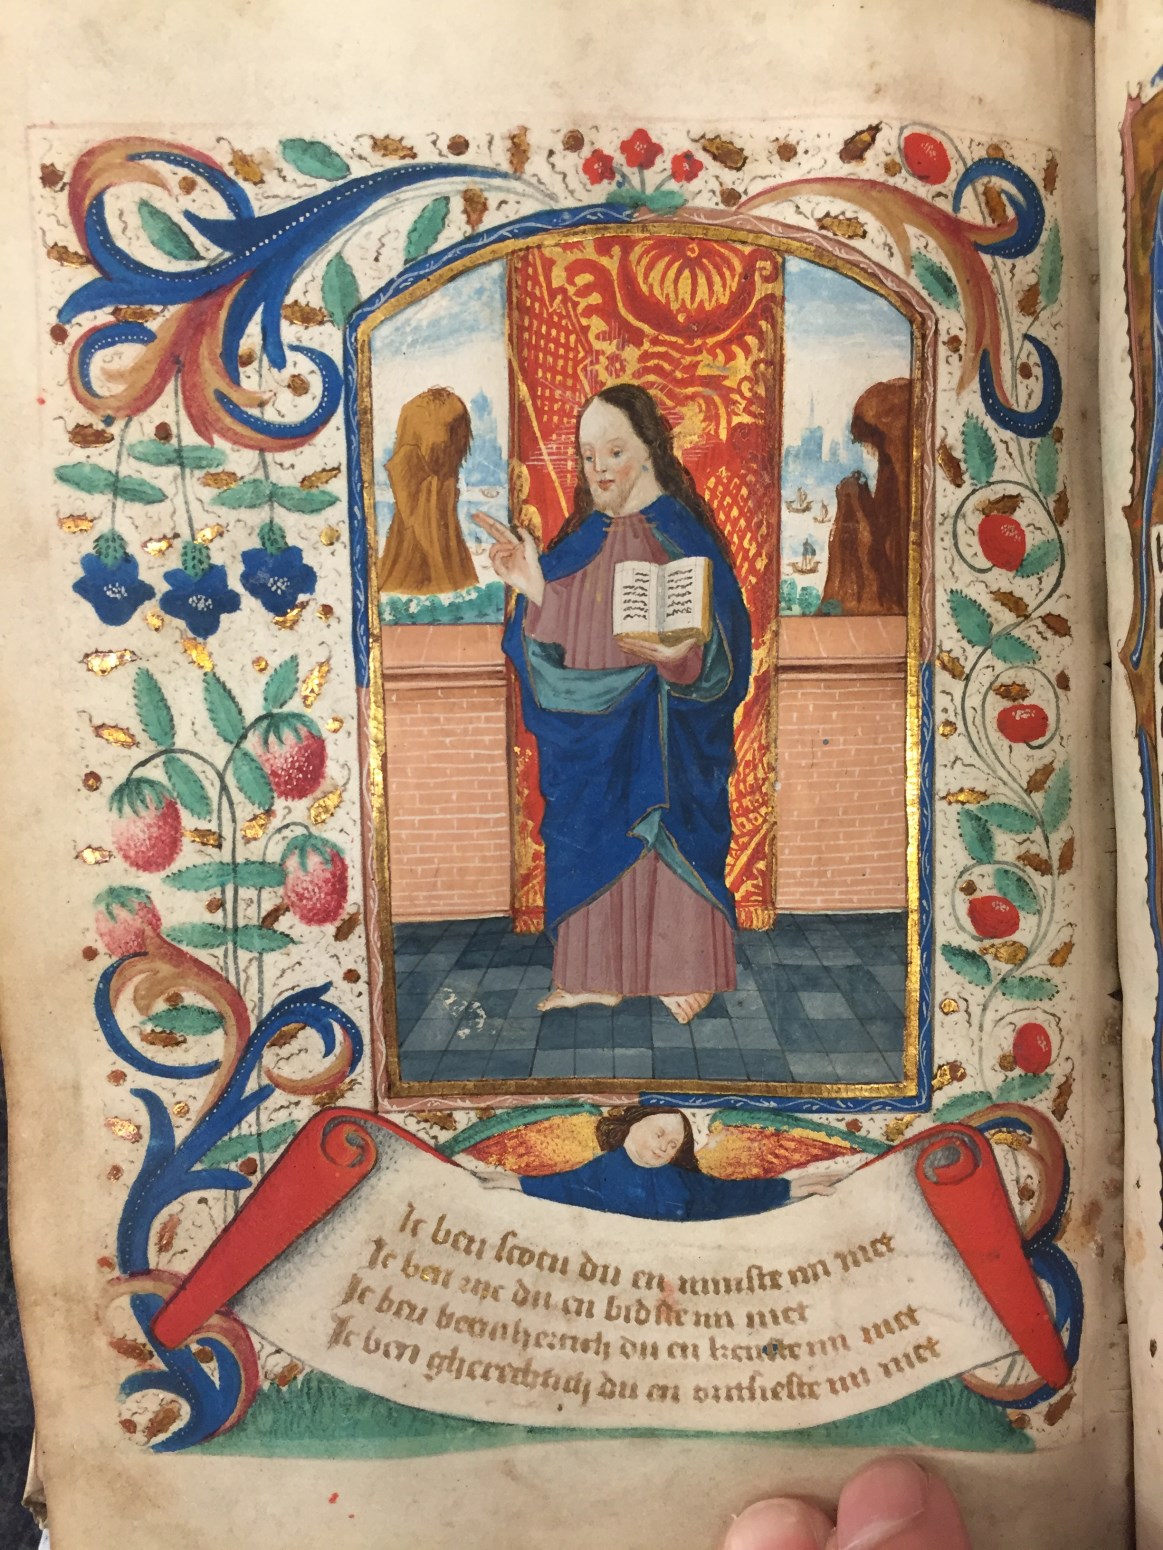 Ic ben scoen du en minste mi niet
Ic ben ryc du en bidste mi niet
Ic ben bermhertich du en kenste mi niet
Ic ben gherechtich du en ontsieste mi niet